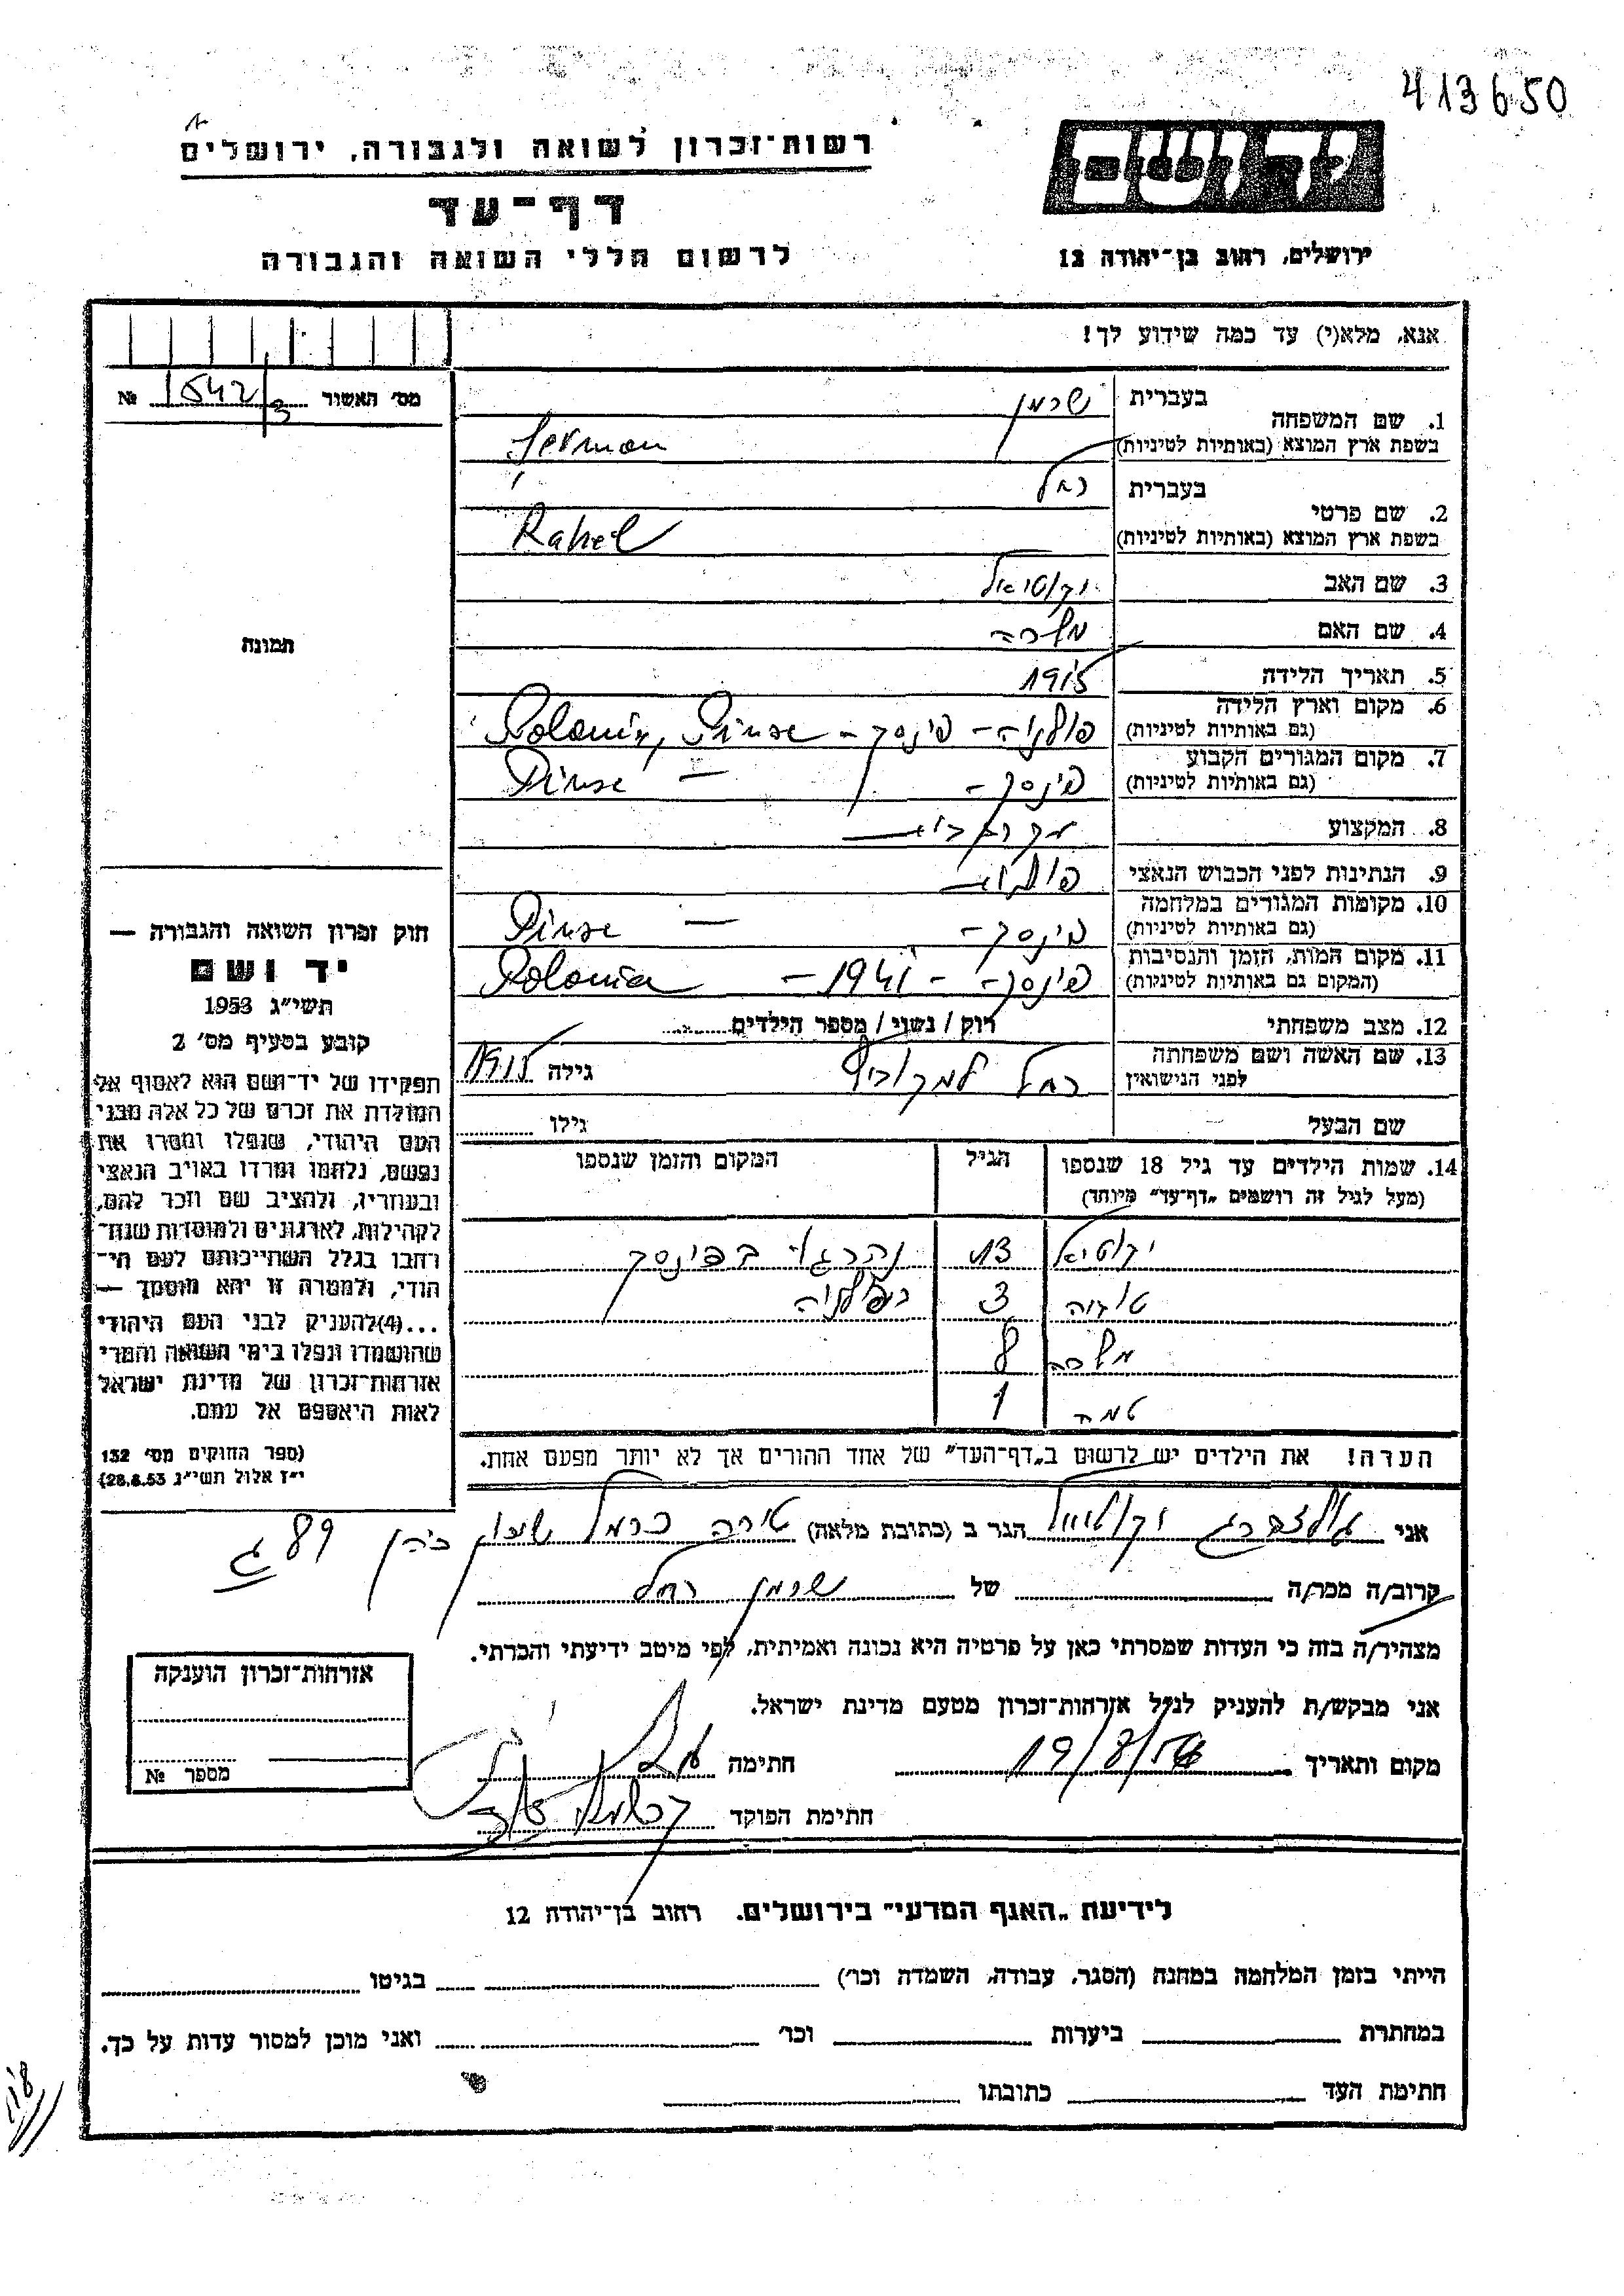 413650
רשות־זכרון לשואה ולגבורה, ירושלים
דף־עד
לרשום חללי השואה והגבורה
יד ושם
ירושלים, רחוב בן־יהודה 12
אנא, מלא(י) עד כמה שידוע לך!
מס' האשור 1542/3 №
תמונה
1. שם המשפחה
בעברית שרמן
בשפת ארץ המוצא (באותיות לטיניות) Serman
2. שם פרטי
בעברית רחל
בשפת ארץ המוצא (באותיות לטיניות) Rahel
3. שם האב יקותיאל
4. שם האם מלכה
5. תאריך הלידה 1915
6. מקום וארץ הלידה (גם באותיות לטיניות) פולניה - פינסק - Polonia, Pinsc
7. מקום המגורים הקבוע (גם באותיות לטיניות) פינסק - Pinsc
8. המקצוע
9. הנתינות לפני הכבוש הנאצי
10. מקומות המגורים במלחמה (גם באותיות לטיניות) פינסק - Pinsc
11. מקום המות, הזמן והנסיבות (המקום גם באותיות לטיניות) פינסק - 1941 - Polonia
12. מצב משפחתי רוק / נשוי / מספר הילדים
13. שם האשה ושם משפחתה לפני הנישואין רחל גילה 1915
שם הבעל גילו
14. שמות הילדים עד גיל 18 שנספו (מעל לגיל זה רושמים „דף־עד” מיוחד) הגיל המקום והזמן שנספו
13 בפינסק
3 בפולניה
מלכה 8
1
הערה! את הילדים יש לרשום ב„דף־העד” של אחד ההורים אך לא יותר מפעם אחת.
חוק זכרון השואה והגבורה —
יד ושם
תשי״ג 1953
קובע בסעיף מס' 2
תפקידו של יד־ושם הוא לאסוף אל
המולדת את זכרם של כל אלה מבני
העם היהודי, שנפלו ומסרו את
נפשם, נלחמו ומרדו באויב הנאצי
ובעוזריו, ולהציב שם וזכר להם,
לקהילות, לארגונים ולמוסדות שנח־
רבו בגלל השתייכותם לעם הי־
הודי, ולמטרה זו יהא מוסמך —
...(4) להעניק לבני העם היהודי
שהושמדו ונפלו בימי השואה והמרי
אזרחות־זכרון של מדינת ישראל
לאות היאספם אל עמם.
(ספר החוקים מס' 132
י״ז אלול תשי״ג 28.8.53)
אני גולדברג יקותיאל הגר ב (כתובת מלאה) טירה כרמל שיכון 89 ג
קרוב/ה מכר/ה של שרמן רחל
מצהיר/ה בזה כי העדות שמסרתי כאן על פרטיה היא נכונה ואמיתית, לפי מיטב ידיעתי והכרתי.
אני מבקש/ת להעניק לנ״ל אזרחות־זכרון מטעם מדינת ישראל.
מקום ותאריך חתימה
חתימת הפוקד
אזרחות־זכרון הוענקה
מספר №
לידיעת „האגף המדעי” בירושלים. רחוב בן־יהודה 12
הייתי בזמן המלחמה במחנה (הסגר, עבודה, השמדה וכו') בגיטו
במחתרת ביערות וכו' ואני מוכן למסור עדות על כך.
חתימת העד כתובתו